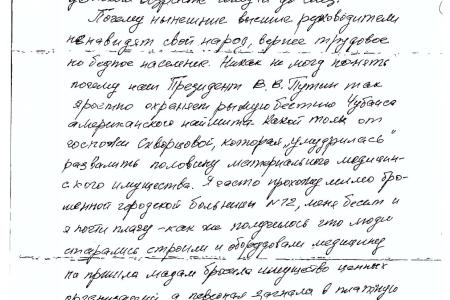 Почему нынешние высшие руководители
ненавидят свой народ, вернее трудовое
но бедное население. Никак не могу понять
почему наш Президент В.В. Путин так
яростно охраняет рыжую бестию Чубайса
американского наймита. Какой толк от
госпожи Скворцовой, которая "умудрилась"
развалить половину материального медицин-
ского имущества. Я часто прохожу мимо бро-
шенной городской больницы №12, меня бесит и
я почти плачу - как же получилось что люди
старались строили и оборудовали медицину
но пришла мадам бросила имущество ценных
организаций, а персонал загнала в платную